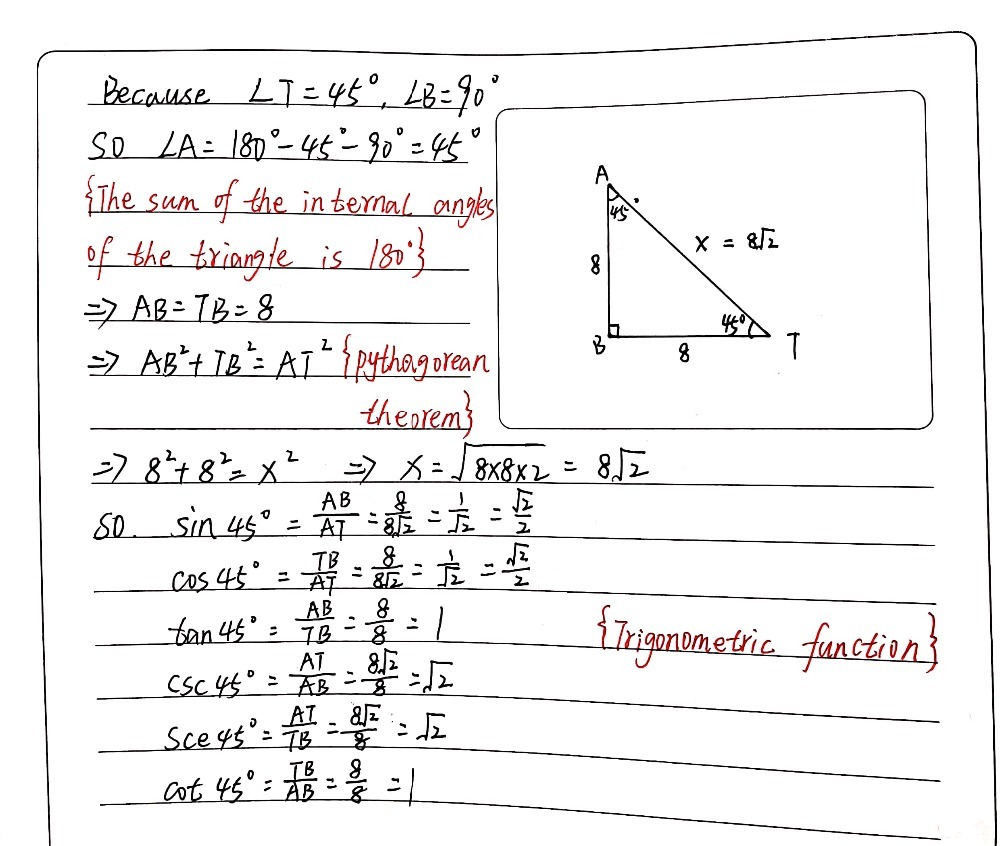 Because ∠T=45°, ∠B=90°
SO ∠A=180°-45°-90°=45°
{The sum of the internal angles
of the triangle is 180°}
=> AB=TB=8
=> AB²+TB²=AT² {pythagorean
theorem}
=> 8²+8²=x² => x=√(8×8×2)=8√2
SO. sin45°=AB/AT=8/8√2=1/√2=√2/2
cos45°=TB/AT=8/8√2=1/√2=√2/2
tan45°=AB/TB=8/8=1
{Trigonometric function}
csc45°=AT/AB=8√2/8=√2
Sce45°=AT/TB=8√2/8=√2
cot45°=TB/AB=8/8=1
A
45°
x = 8√2
8
45°
B
8
T